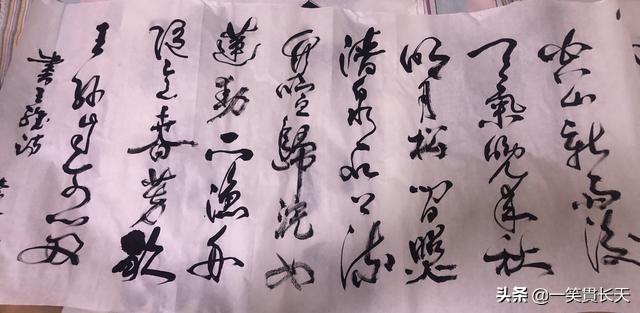 空山新雨後
天氣晚來秋
明月松間照
清泉石上流
竹喧歸浣女
蓮動下漁舟
隨意春芳歇
王孫自可留
書王維詩
头条 @一笑貫长天